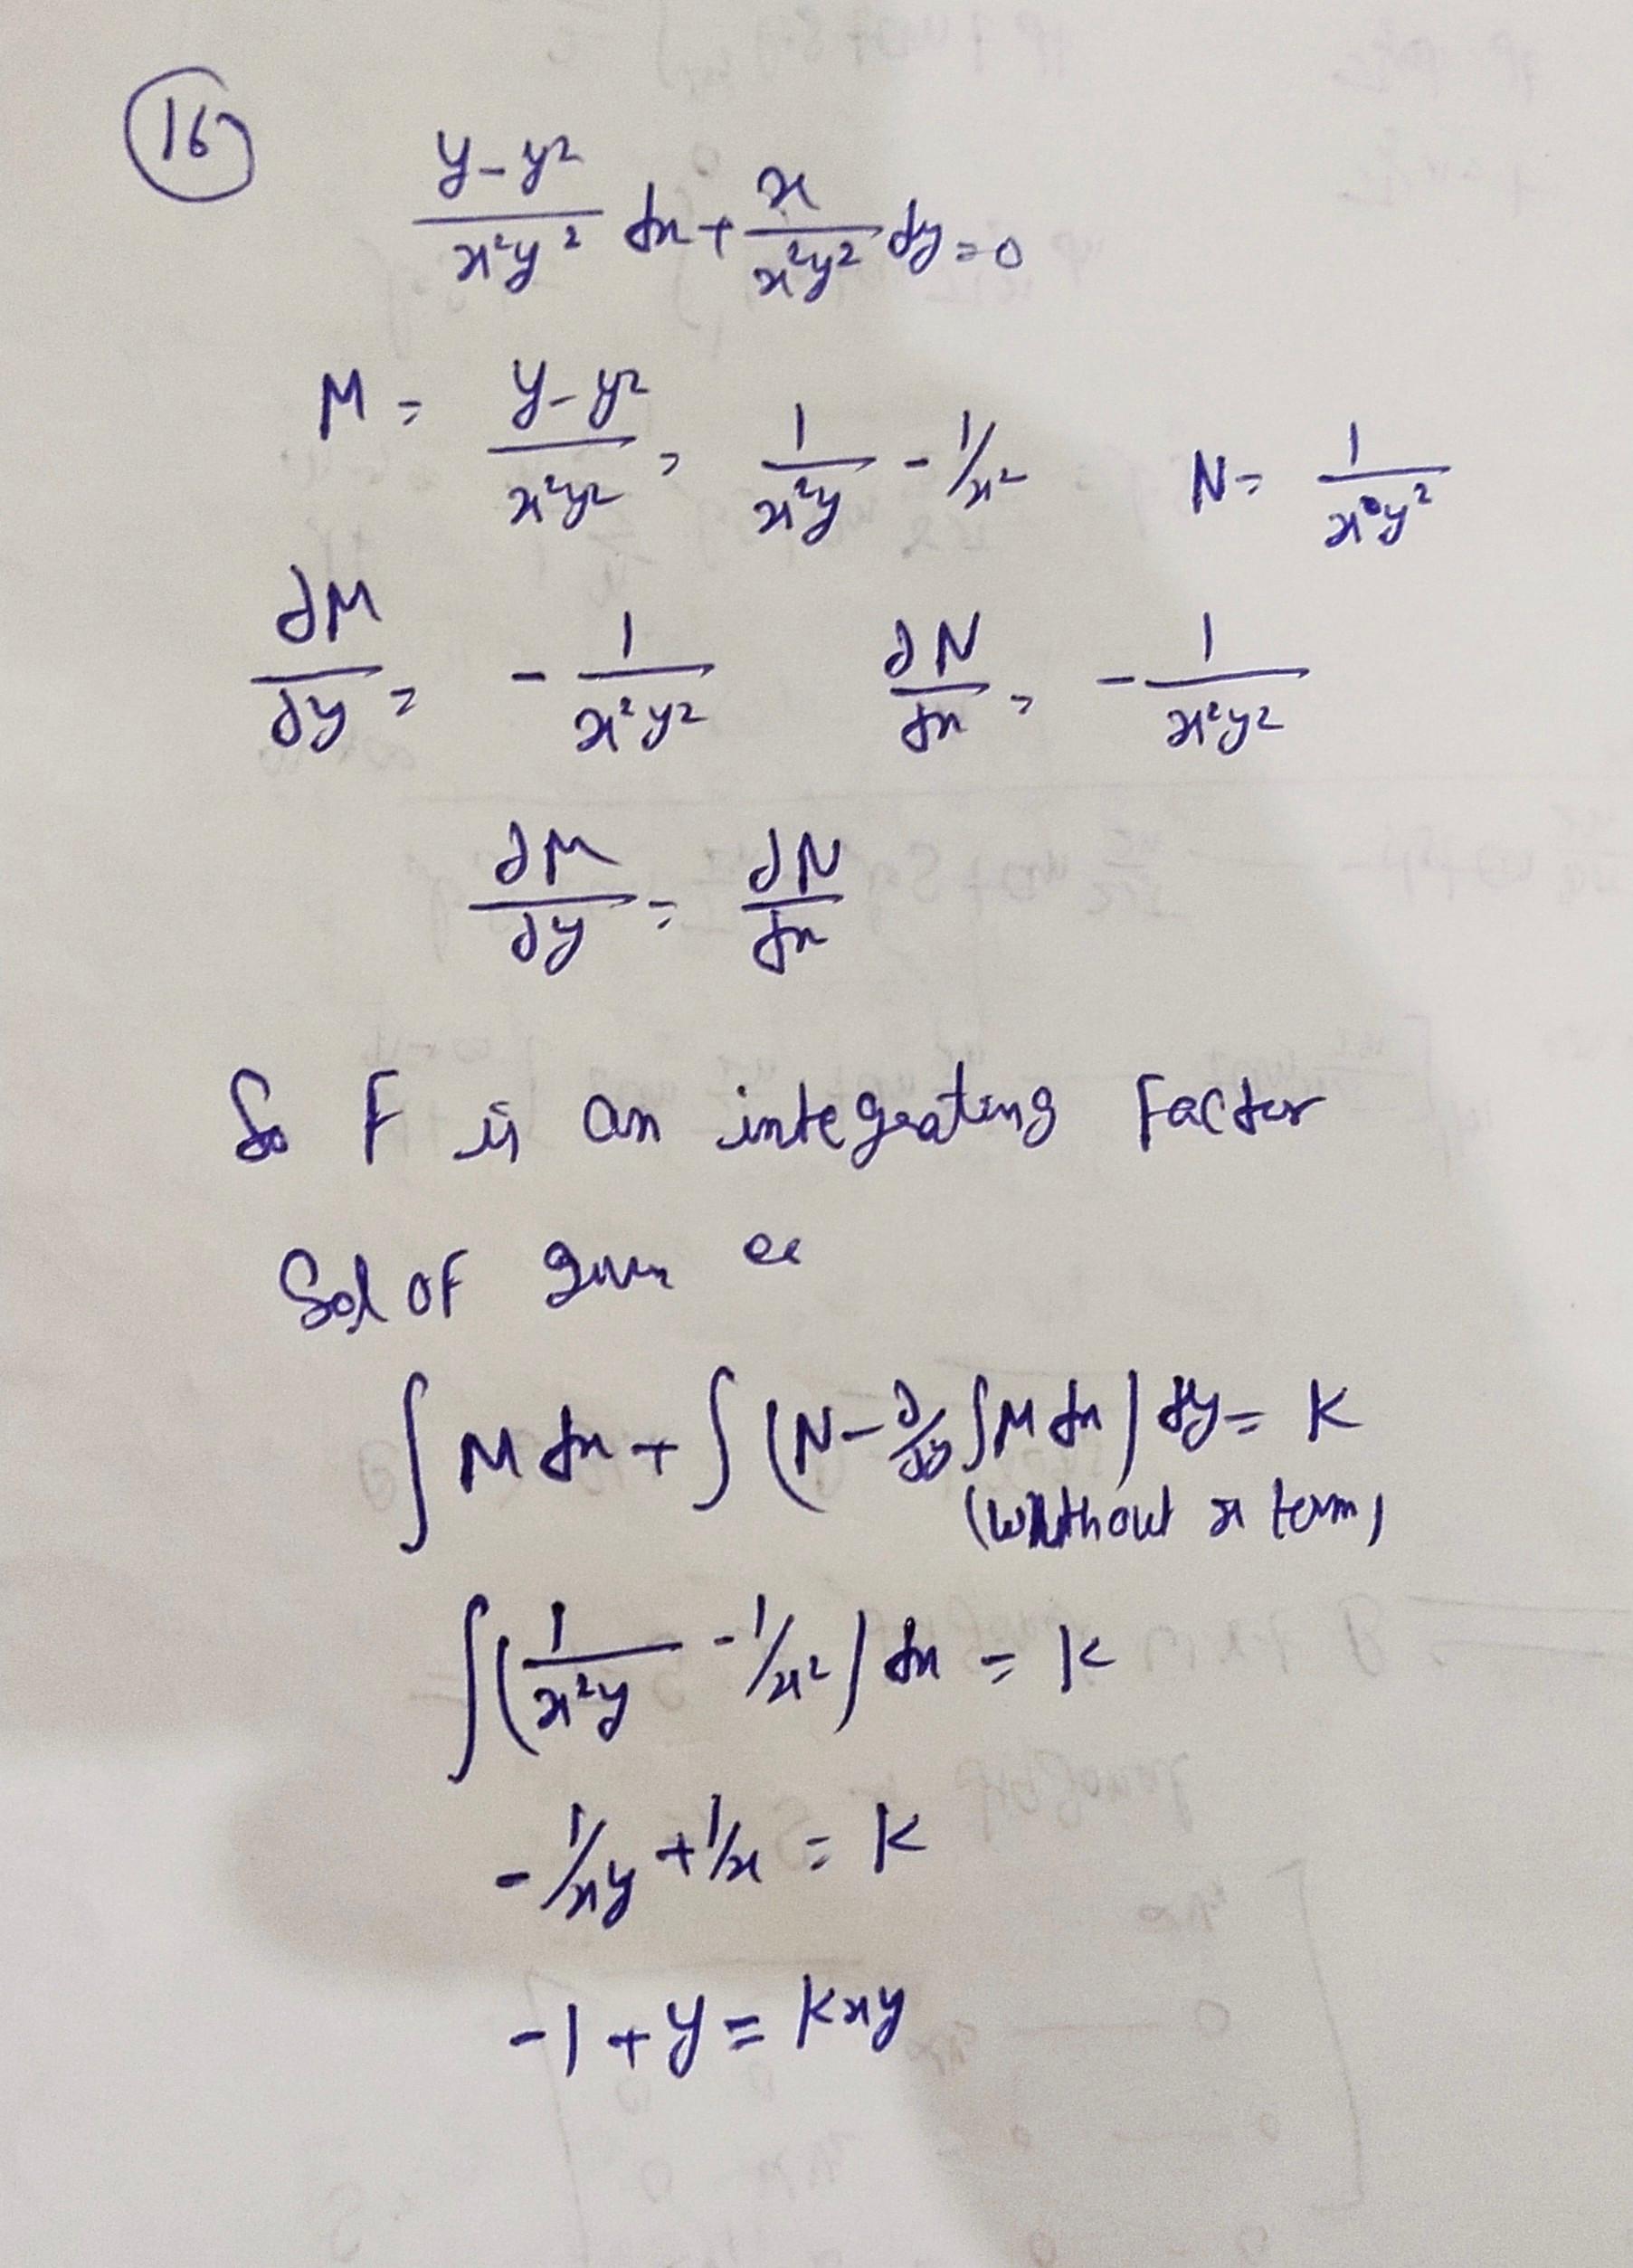 16
y-y²/x²y² dx + x/x²y² dy = 0
M = y-y²/x²y² = 1/x²y - 1/x² N = 1/xy²
∂M/∂y = - 1/x²y² ∂N/∂x = - 1/x²y²
∂M/∂y = ∂N/∂x
So F is an integrating Factor
Sol OF given
∫ M dx + ∫ (N - ∂/∂y ∫M dx) dy = K
(without x term)
∫(1/x²y - 1/x²) dx = K
- 1/xy + 1/x = K
-1 + y = Kxy